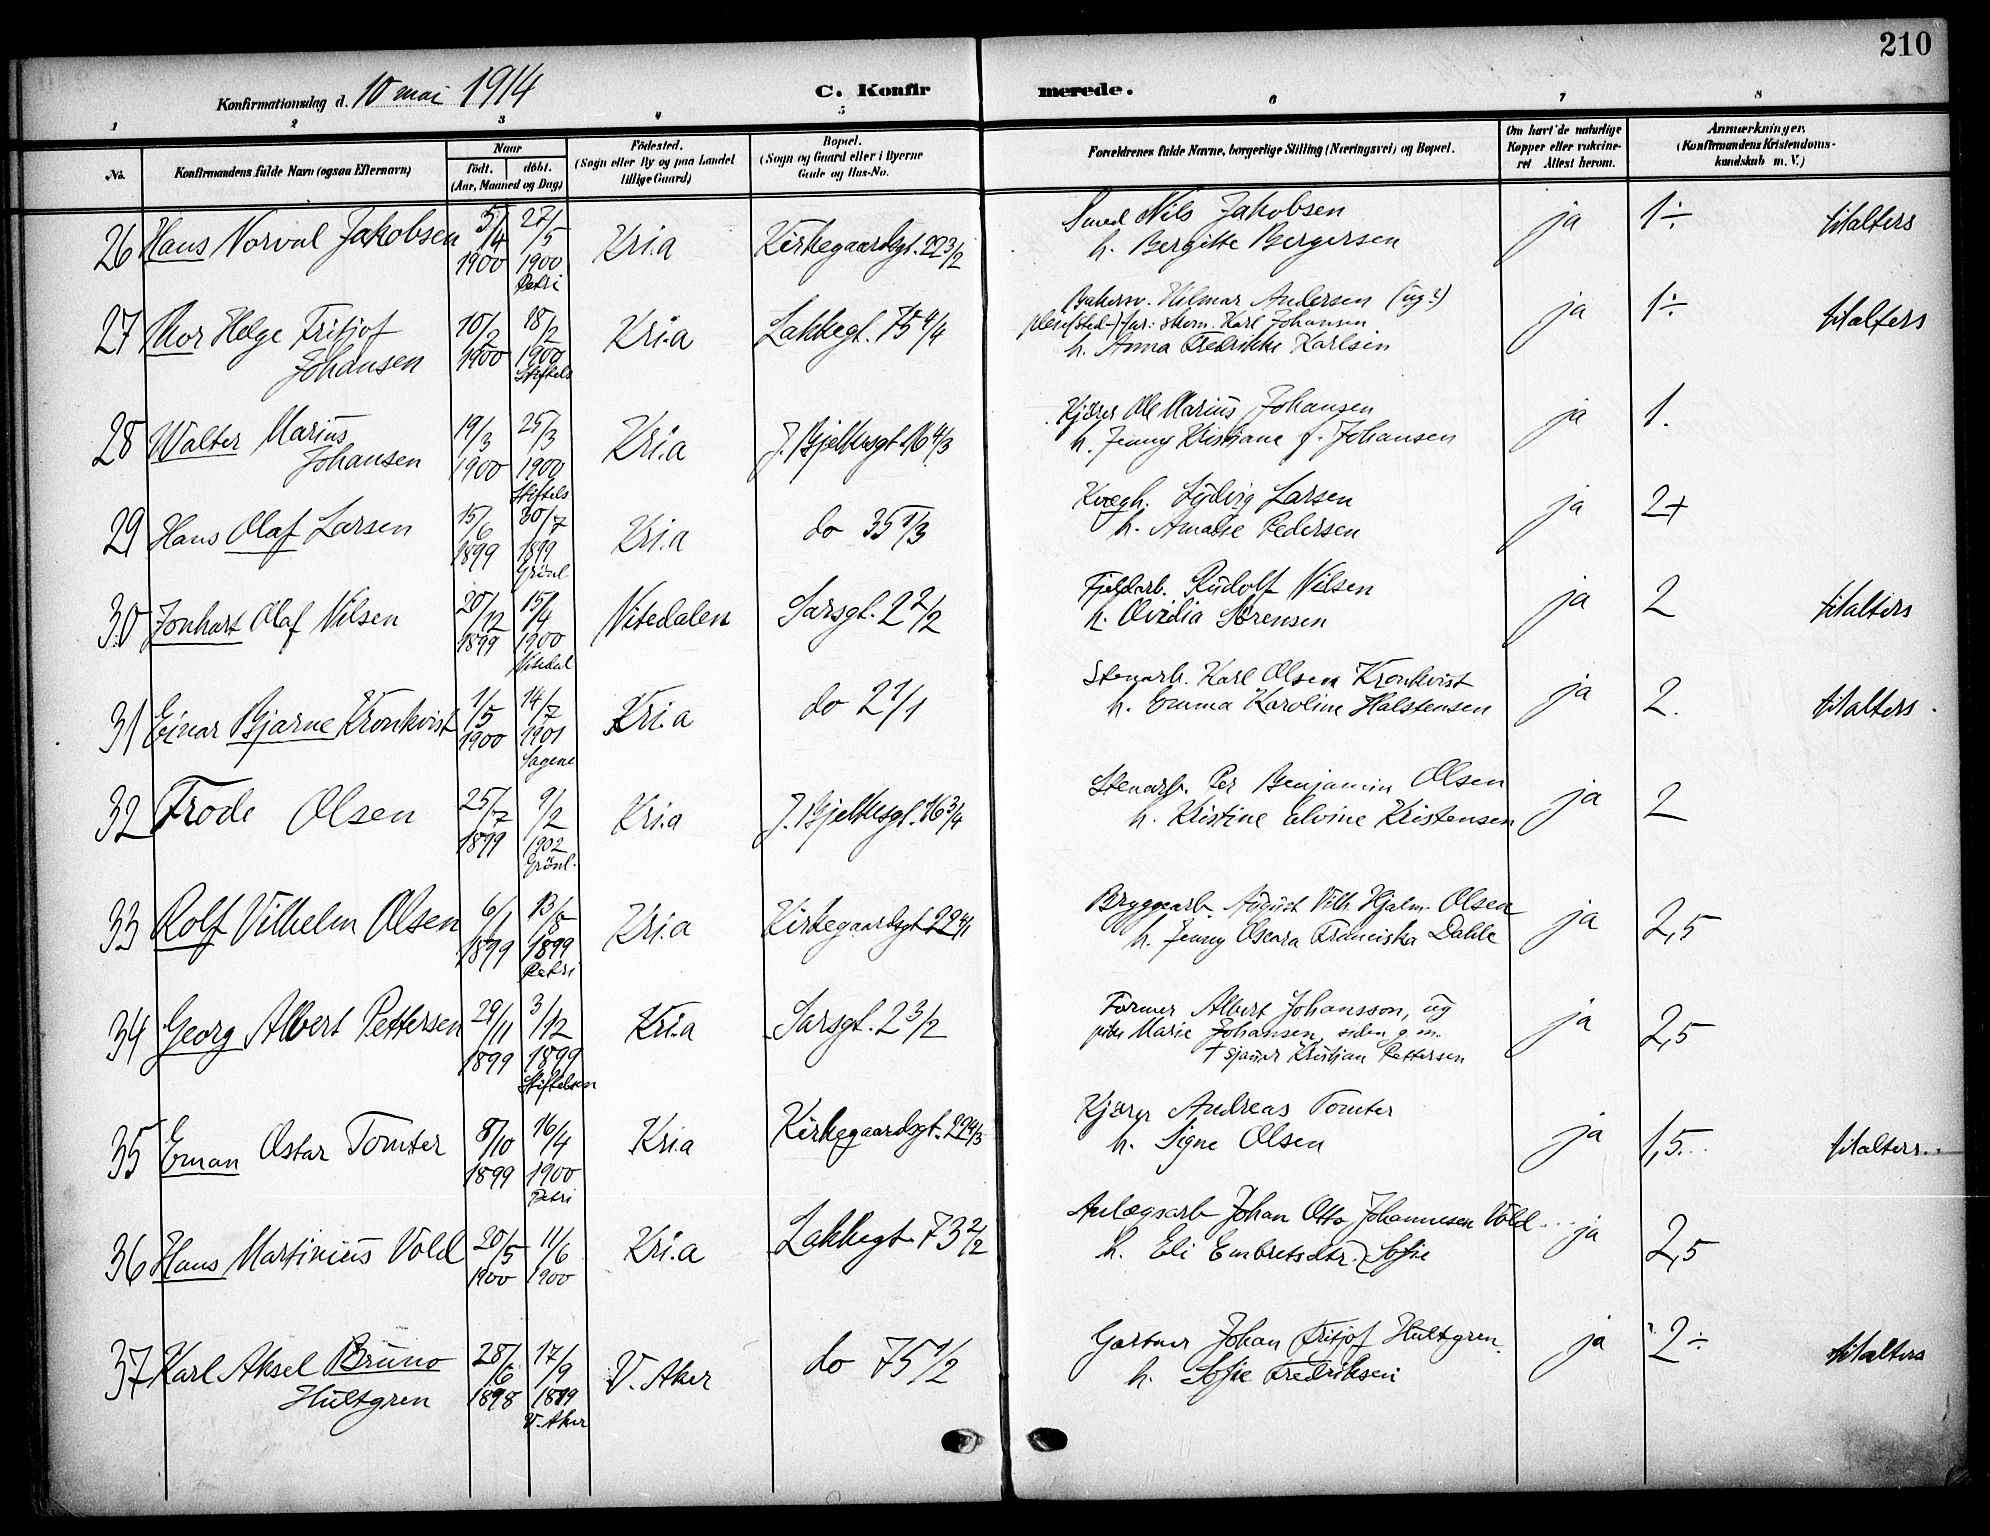 210
Konfirmationsdag d. 10 mai 1914
C. Konfirmerede.
1 2 3 4 5 6 7 8
No.
Konfirmandens fulde Navn (ogsaa Efternavn)
Naar
født. døbt.
(Aar, Maaned og Dag)
Fødested.
(Sogn eller By og paa Landet
tillige Gaard)
Bopæl.
(Sogn og Gaard eller i Byerne
Gade og Hus-No.
Forældrenes fulde Navne, borgerlige Stilling (Næringsvei) og Bopæl.
Om havt de naturlige
Kopper eller vakcine-
ret Attest herom.
Anmærkninger.
(Konfirmandens Kristendoms-
kundskab m. V.)
26 Hans Norval Jakobsen 5/4 1900 27/5 1900 Petri Kri.a Kirkegaardsgt. 22 3/2
Smed Nils Jakobsen ja 1÷ Malters
h. Bergitte Bergersen
27 Thor Helge Fritjof 10/2 1900 18/2 1900 Stiftels Kri.a Lakkegt. 75 4/4
Johansen
Bakersv. Hilmar Andersen (ug?) ja 1÷ Malters
plejef(sted-)far: skom. Karl Johansen
h. Anna Fredrikke Karlsen
28 Walter Marius 19/3 1900 25/3 1900 Stiftels Kri.a J. Bjelkesgt. 16 4/3
Johansen
Kjører Ole Marius Johansen ja 1.
h. Jenny Kristiane f. Johansen
29 Hans Olaf Larsen 15/6 1899 30/7 1899 Grönl Kri.a do 35 1/3
Kvægh. Lydvig Larsen ja 2+
h. Amalie Pedersen
30 Jonhart Olaf Nilsen 20/12 1899 15/4 1900 Nitedal Nitedalen Sarsgt. 2 2/2
Fjeldarb. Rudolf Nilsen ja 2 Malters
h. Ovidia Sørensen
31 Einar Bjarne Kronkvist 1/5 1900 14/7 1901 Sagene Kri.a do 2 1/1
Stenarb. Karl Olsen Kronkvist ja 2. Malters.
h. Emma Karoline Halstensen
32 Frode Olsen 25/7 1899 9/2 1902 Grönl. Kri.a J. Bjelkesgt. 16 3/4
Stenarb. Per Benjamin Olsen ja 2
h. Kristine Elvine Kristensen
33 Rolf Vilhelm Olsen 6/1 1899 13/5 1899 Petri Kri.a Kirkegaardsgt 22 4/1
Bryggearb. August Vilh. Hjalm. Olsen ja 2,5
h. Jenny Oscara Franciska Dahle
34 Georg Albert Pettersen 29/11 1899 3/12 1899 Stiftelsen Kri.a Sarsgt. 2 3/2
Former Albert Johansson, ug ja 2,5
pike Marie Johansen, siden g. m.
+ sjauer Kristian Pettersen
35 Eman Ostar Tomter 8/10 1899 16/4 1900 Petri Kri.a Kirkegaardsgt. 22 4/3
Kjører Andreas Tomter ja 1,5.. Malters..
h. Signe Olsen
36 Hans Martinius Vold 20/5 1900 11/6 1900 Kri.a Lakkegt 73 2/2
Anlægsarb Johan Otto Johannesen Vold ja 2,5
h. Eli Embretsdtr. Sofie
37 Karl Aksel Bruno 28/6 1898 17/9 1899 V. Aker V. Aker do 75 1/2
Hultgren
Gartner Johan Fritjof Hultgren. ja 2÷ Malters
h. Sofie Fredriksen